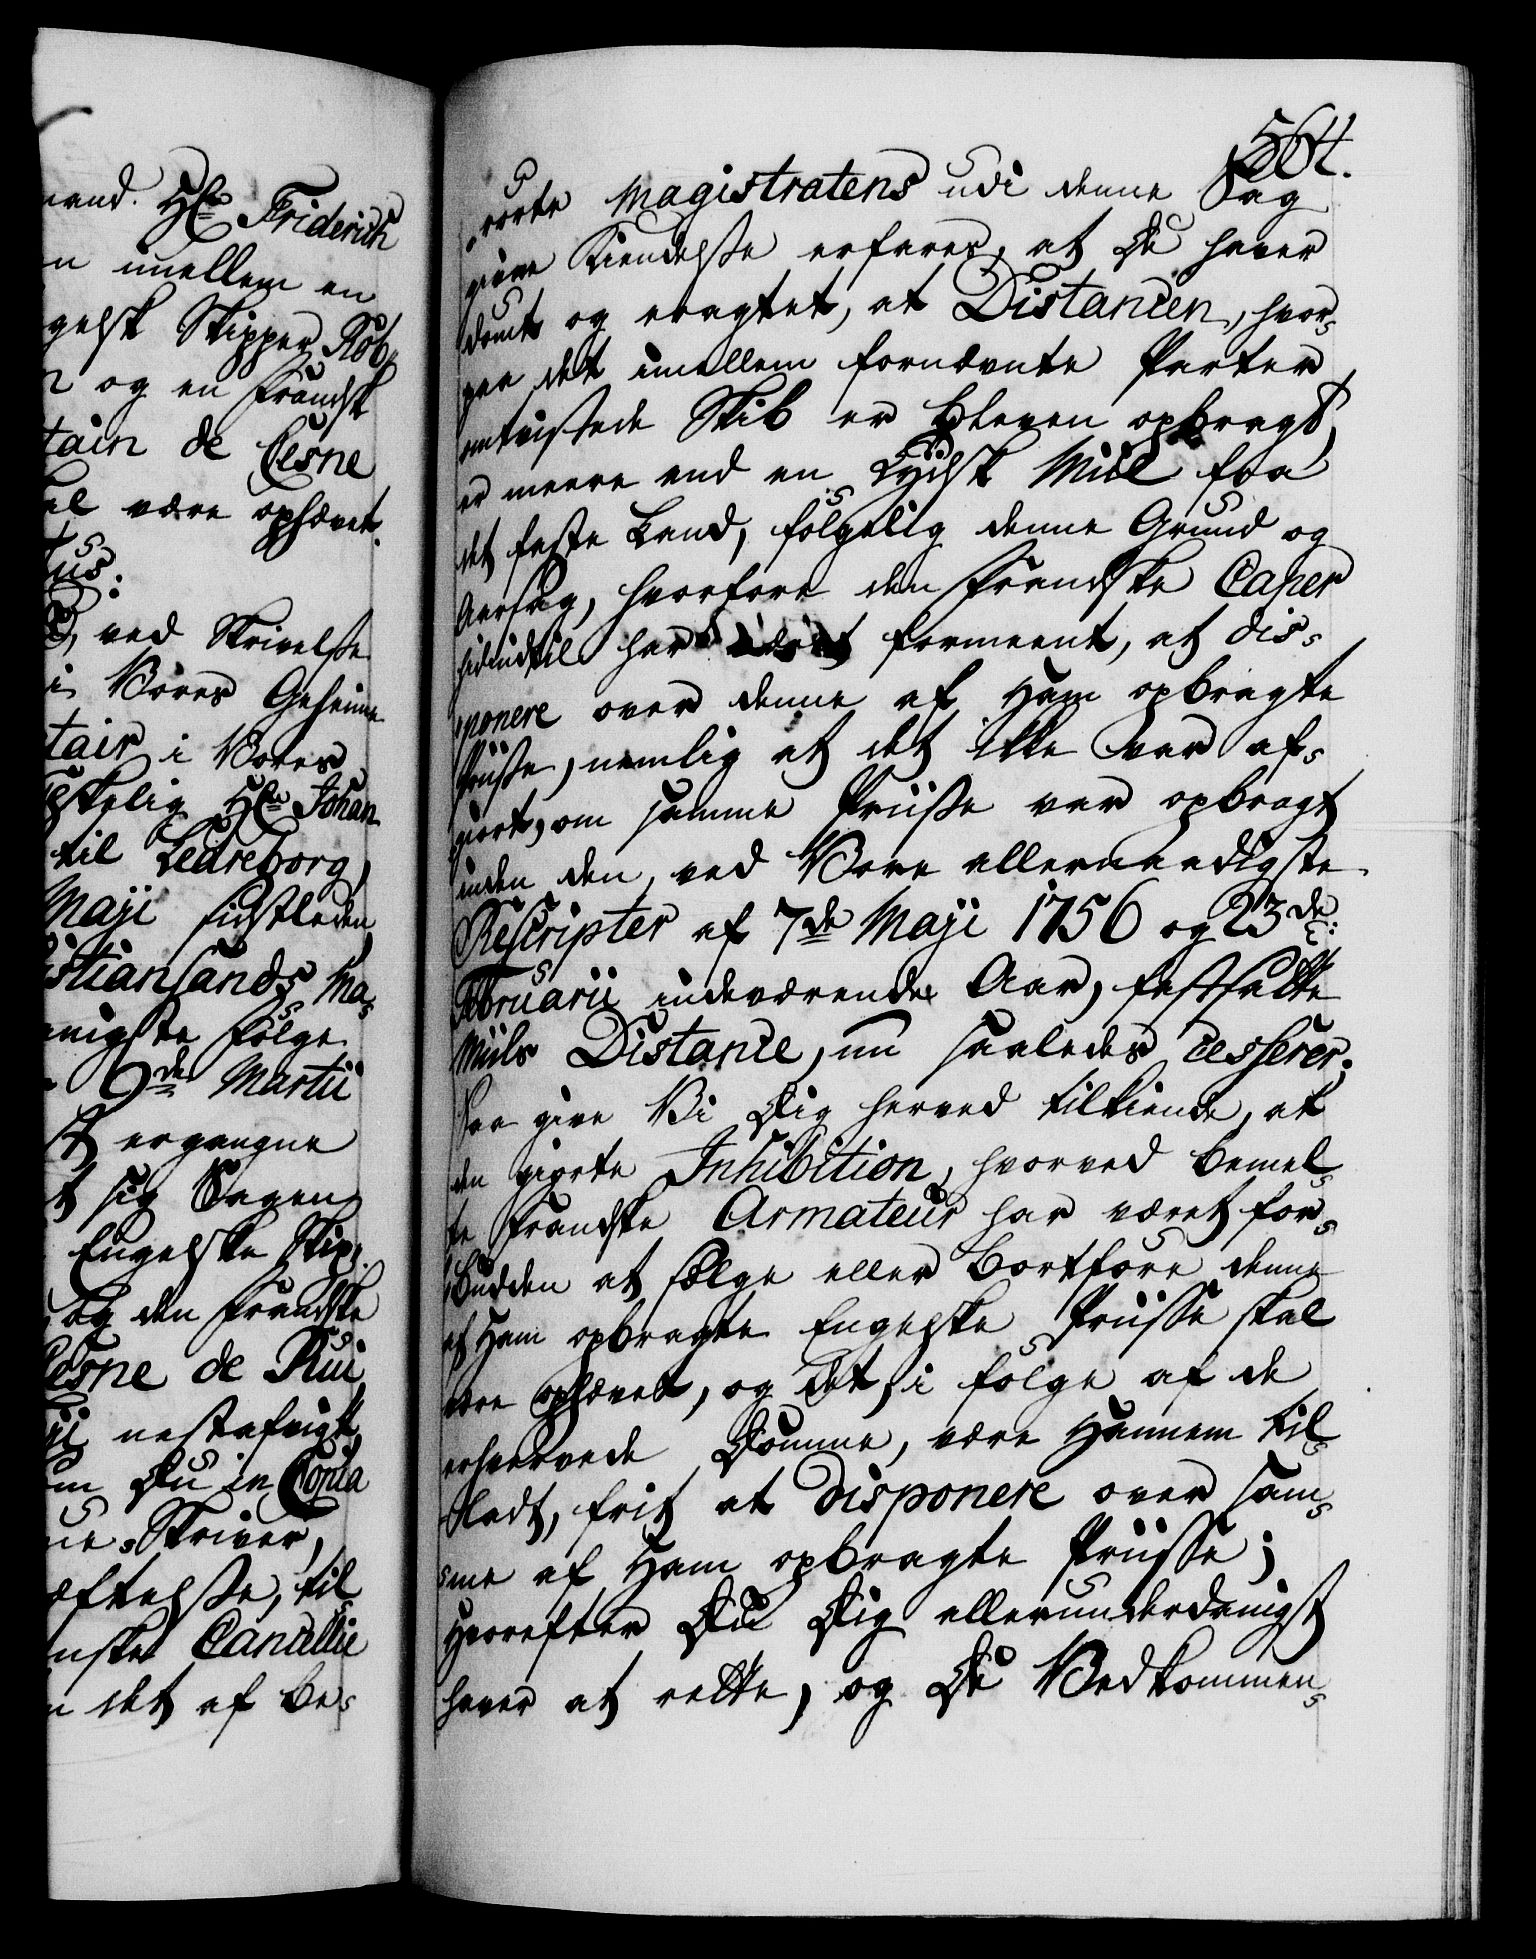 mand. Hr. Friderich
n imellem en
gelsk Skipper Rob
n og en Frandsk
tain de Cesne
al være ophævet.
us.
ved Skrivelse
i Vores Geheime
tair i Vores
skelig Hr. Johan
til Ledreborg,
Maji sidstleden
istiansands Ma-
nigste følge
9de Martii
st ergangne
t sig Sagen
Engelske Skip-
og den Frandske
Cesne de Rui
nestafvigt
m Du in Copia
ne-Skriver,
æftelse, til
nske Cancellie
n det af be-
564.
rørte Magistratens udi denne Sag
givne Kiendelse erfares, at De haver
dømt og eragtet, at Distancen, hvor-
paa det imellem fornævnte Parter
omtvistede Skib er bleven opbragt,
er meere end en Tydsk Miil fra
det faste Land, følgelig denne Grund og
Aarsag, hvorfore den Frandske Caper
hidindtil har formeent, at dis-
ponere over denne af Ham opbragte
Priisse, nemlig at det ikke var af-
giort, om samme Priisse var opbragt
inden den, ved Vore allernaadigste
Rescripter af 7de Maji 1756 og 23de
Februarii indeværende Aar, fastsatte
Miils Distance, nu saaledes cesserer;
Saa give Vi Dig herved tilkiende, at
den giorte Inhibition, hvorved bemel-
te Frandske Armateur har været for-
budden at sælge eller bortføre denne
af Ham opbragte Engelske Priisse skal
være ophævet, og det, i følge af de
erhvervede Domme, være Hannem til-
ladt, frit at disponere over sam-
me af Ham opbragte Priisse;
Hvorefter Du Dig allerunderdanigst
haver at rette, og De Vedkommen-